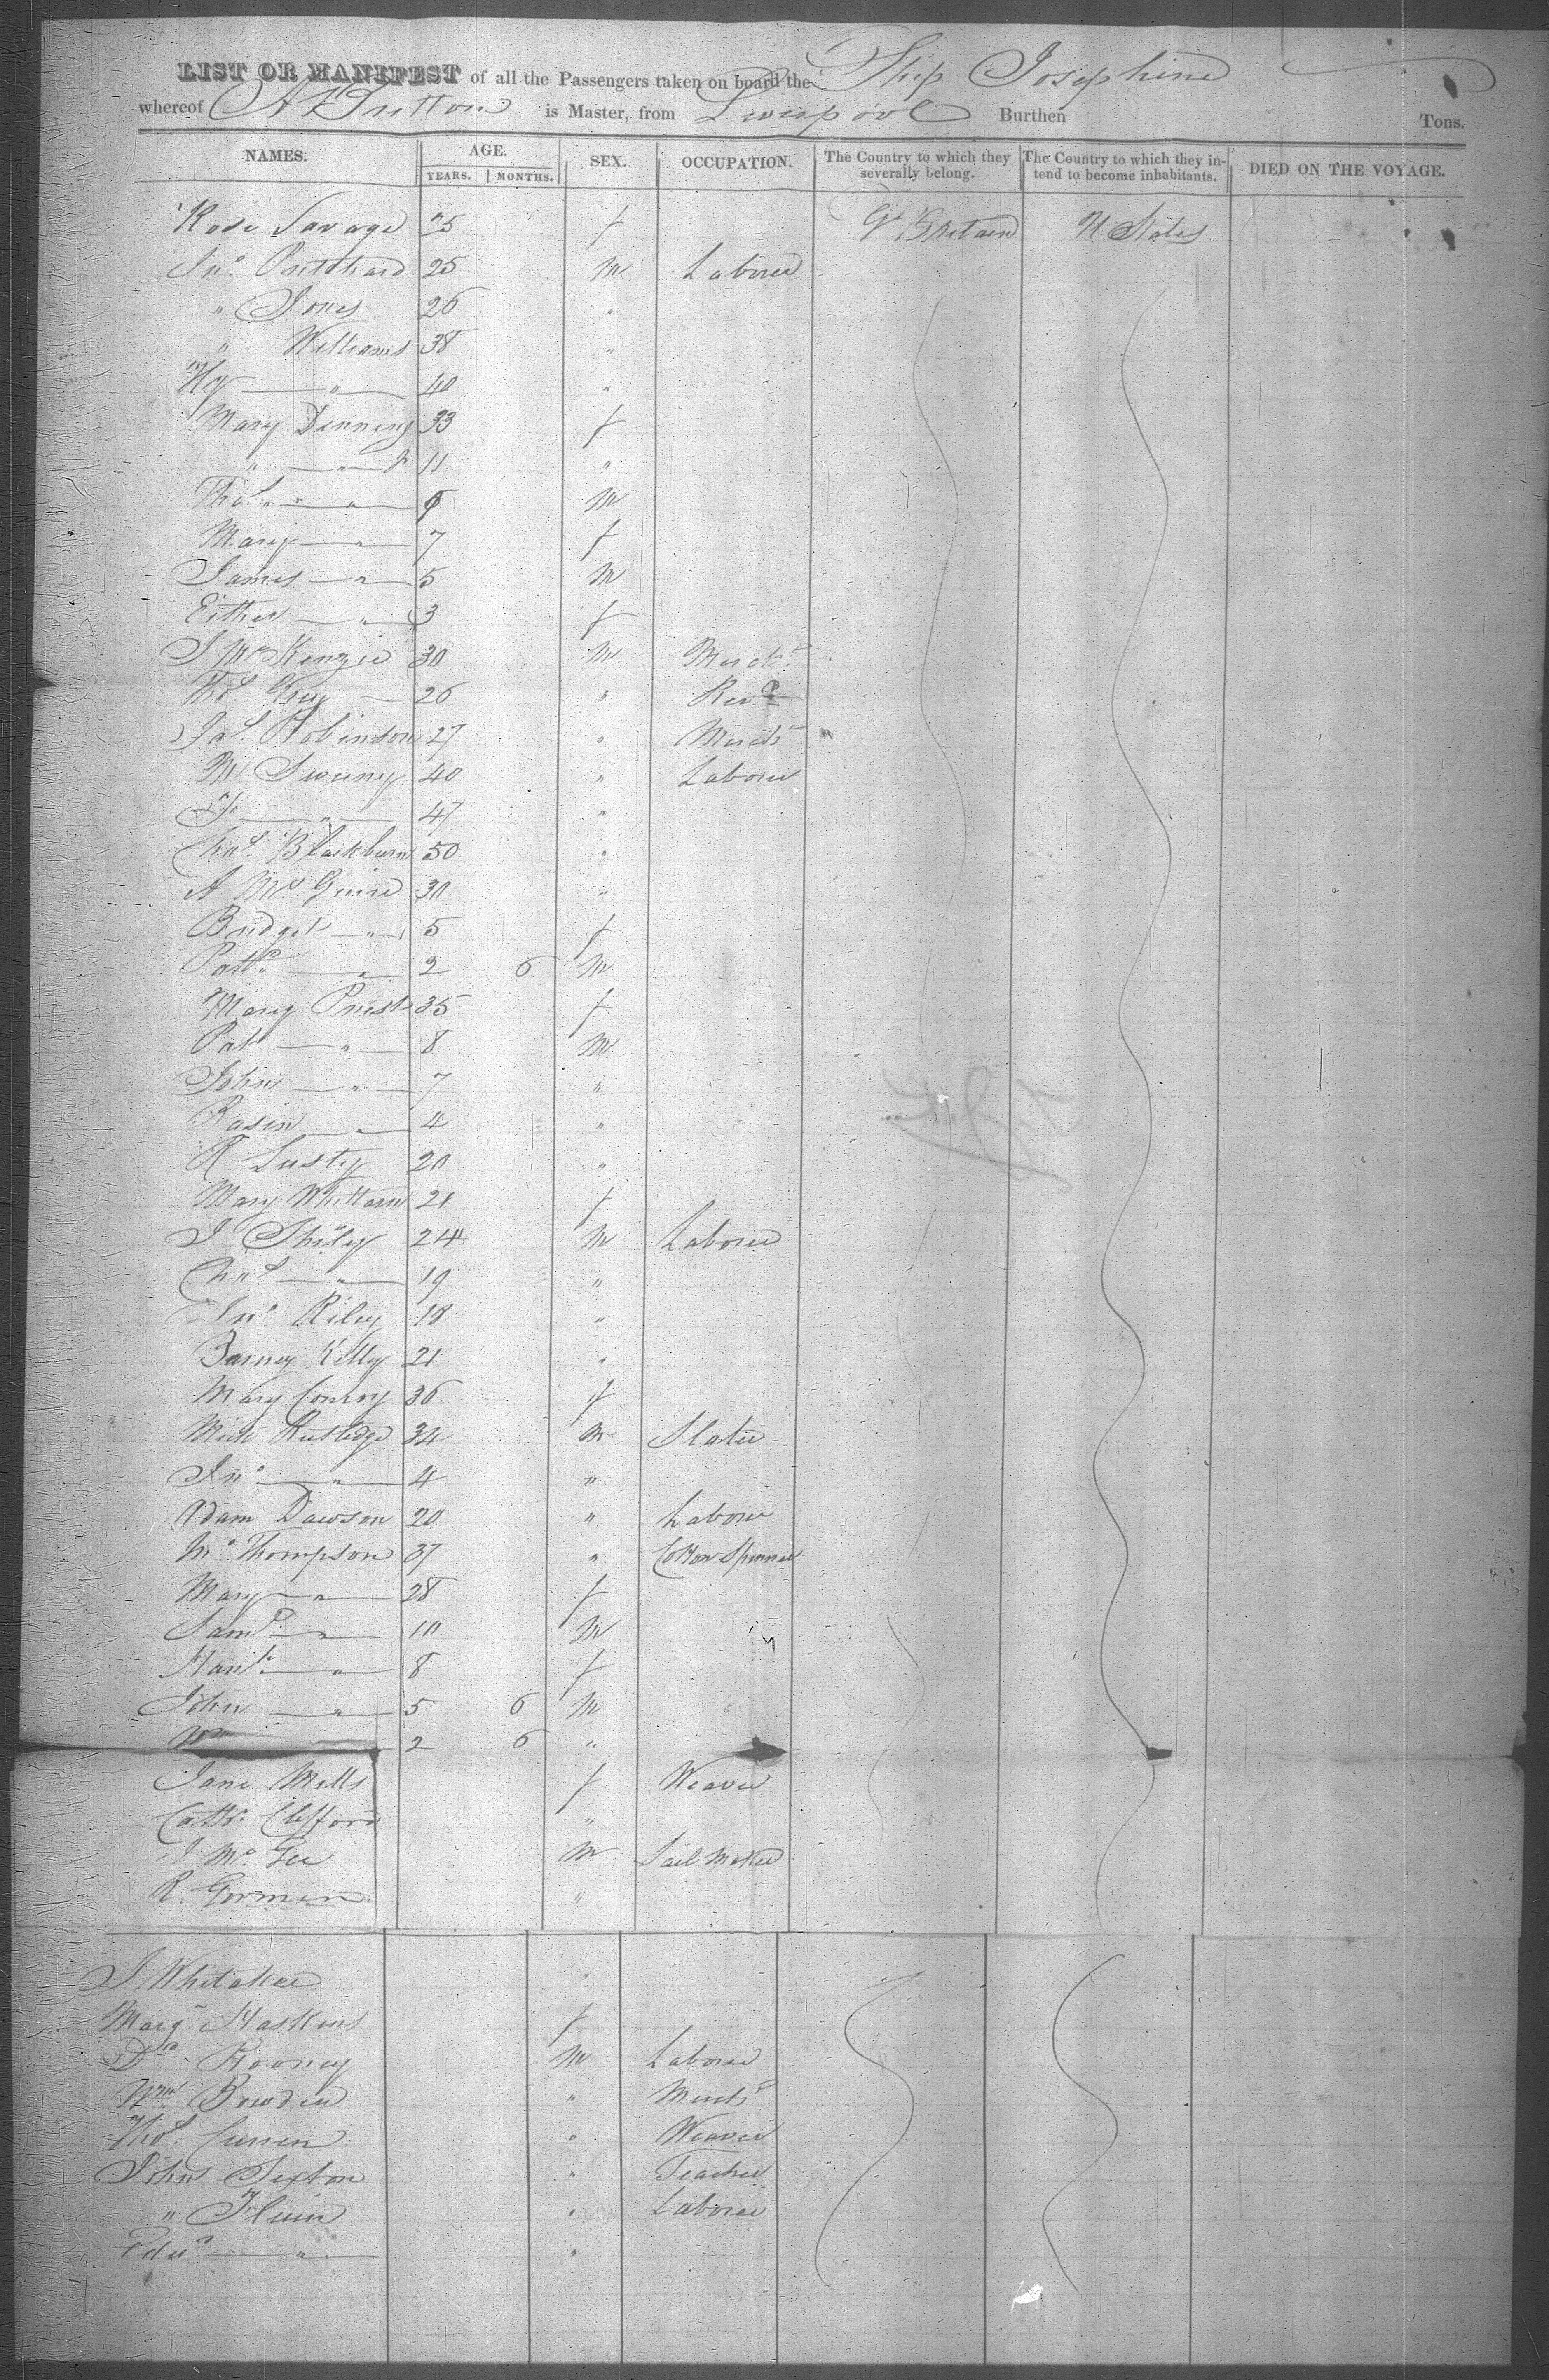 LIST OR MANIFEST of all the Passengers taken on board the Ship Josephine
whereof is Master, from Liverpool Burthen Tons.
NAMES. AGE. SEX. OCCUPATION. The Country to which they severally belong. The Country to which they intend to become inhabitants. DIED ON THE VOYAGE.
YEARS. MONTHS.
Rose Savage 25 f Gt Britain U States
Jno. Pritchard 25 m Laborer
" Jones 26 "
" Williams 38 "
" 40 "
Mary Denning 33 f
" " 11 "
Thos. " m
Mary " 7 f
James " 5 m
Esther " 3 f
J McKenzie 30 m Mercht
Thos. 26 " Revd
Jas. Robinson 27 " Mercht
M Sweeny 40 " Laborer
" 47 "
Chas. Blackburn 50 "
A McGuire 30 "
Bridget " 5 f
Patk " 2 6 m
Mary Priest 35 f
Pat " 8 m
John " 7 "
" 4 "
R Lusty 20 "
Mary 21 f
J 24 m Laborer
Chas " 19 "
Jno. Riley 18 "
Barney Kelly 21 "
Mary Conroy 36 f
Mich Rutledge 34 m Slater
Jno. " 4 "
Adam Dawson 20 " Laborer
Thompson 37 " Cotton Spinner
Mary " 28 f
Saml " 10 m
Hanh " 8 f
John " 5 6 m
Wm 2 6 "
Jane Mills f Weaver
Cath. Clifford "
J McGee m Sail Maker
R. Gorman "
J Whitaker "
Margt Haskins f
Rooney m Laborer
Wm Bowden " Mercht
Thos. Curren " Weaver
John Sexton " Teacher
" " Laborer
Edwd " "